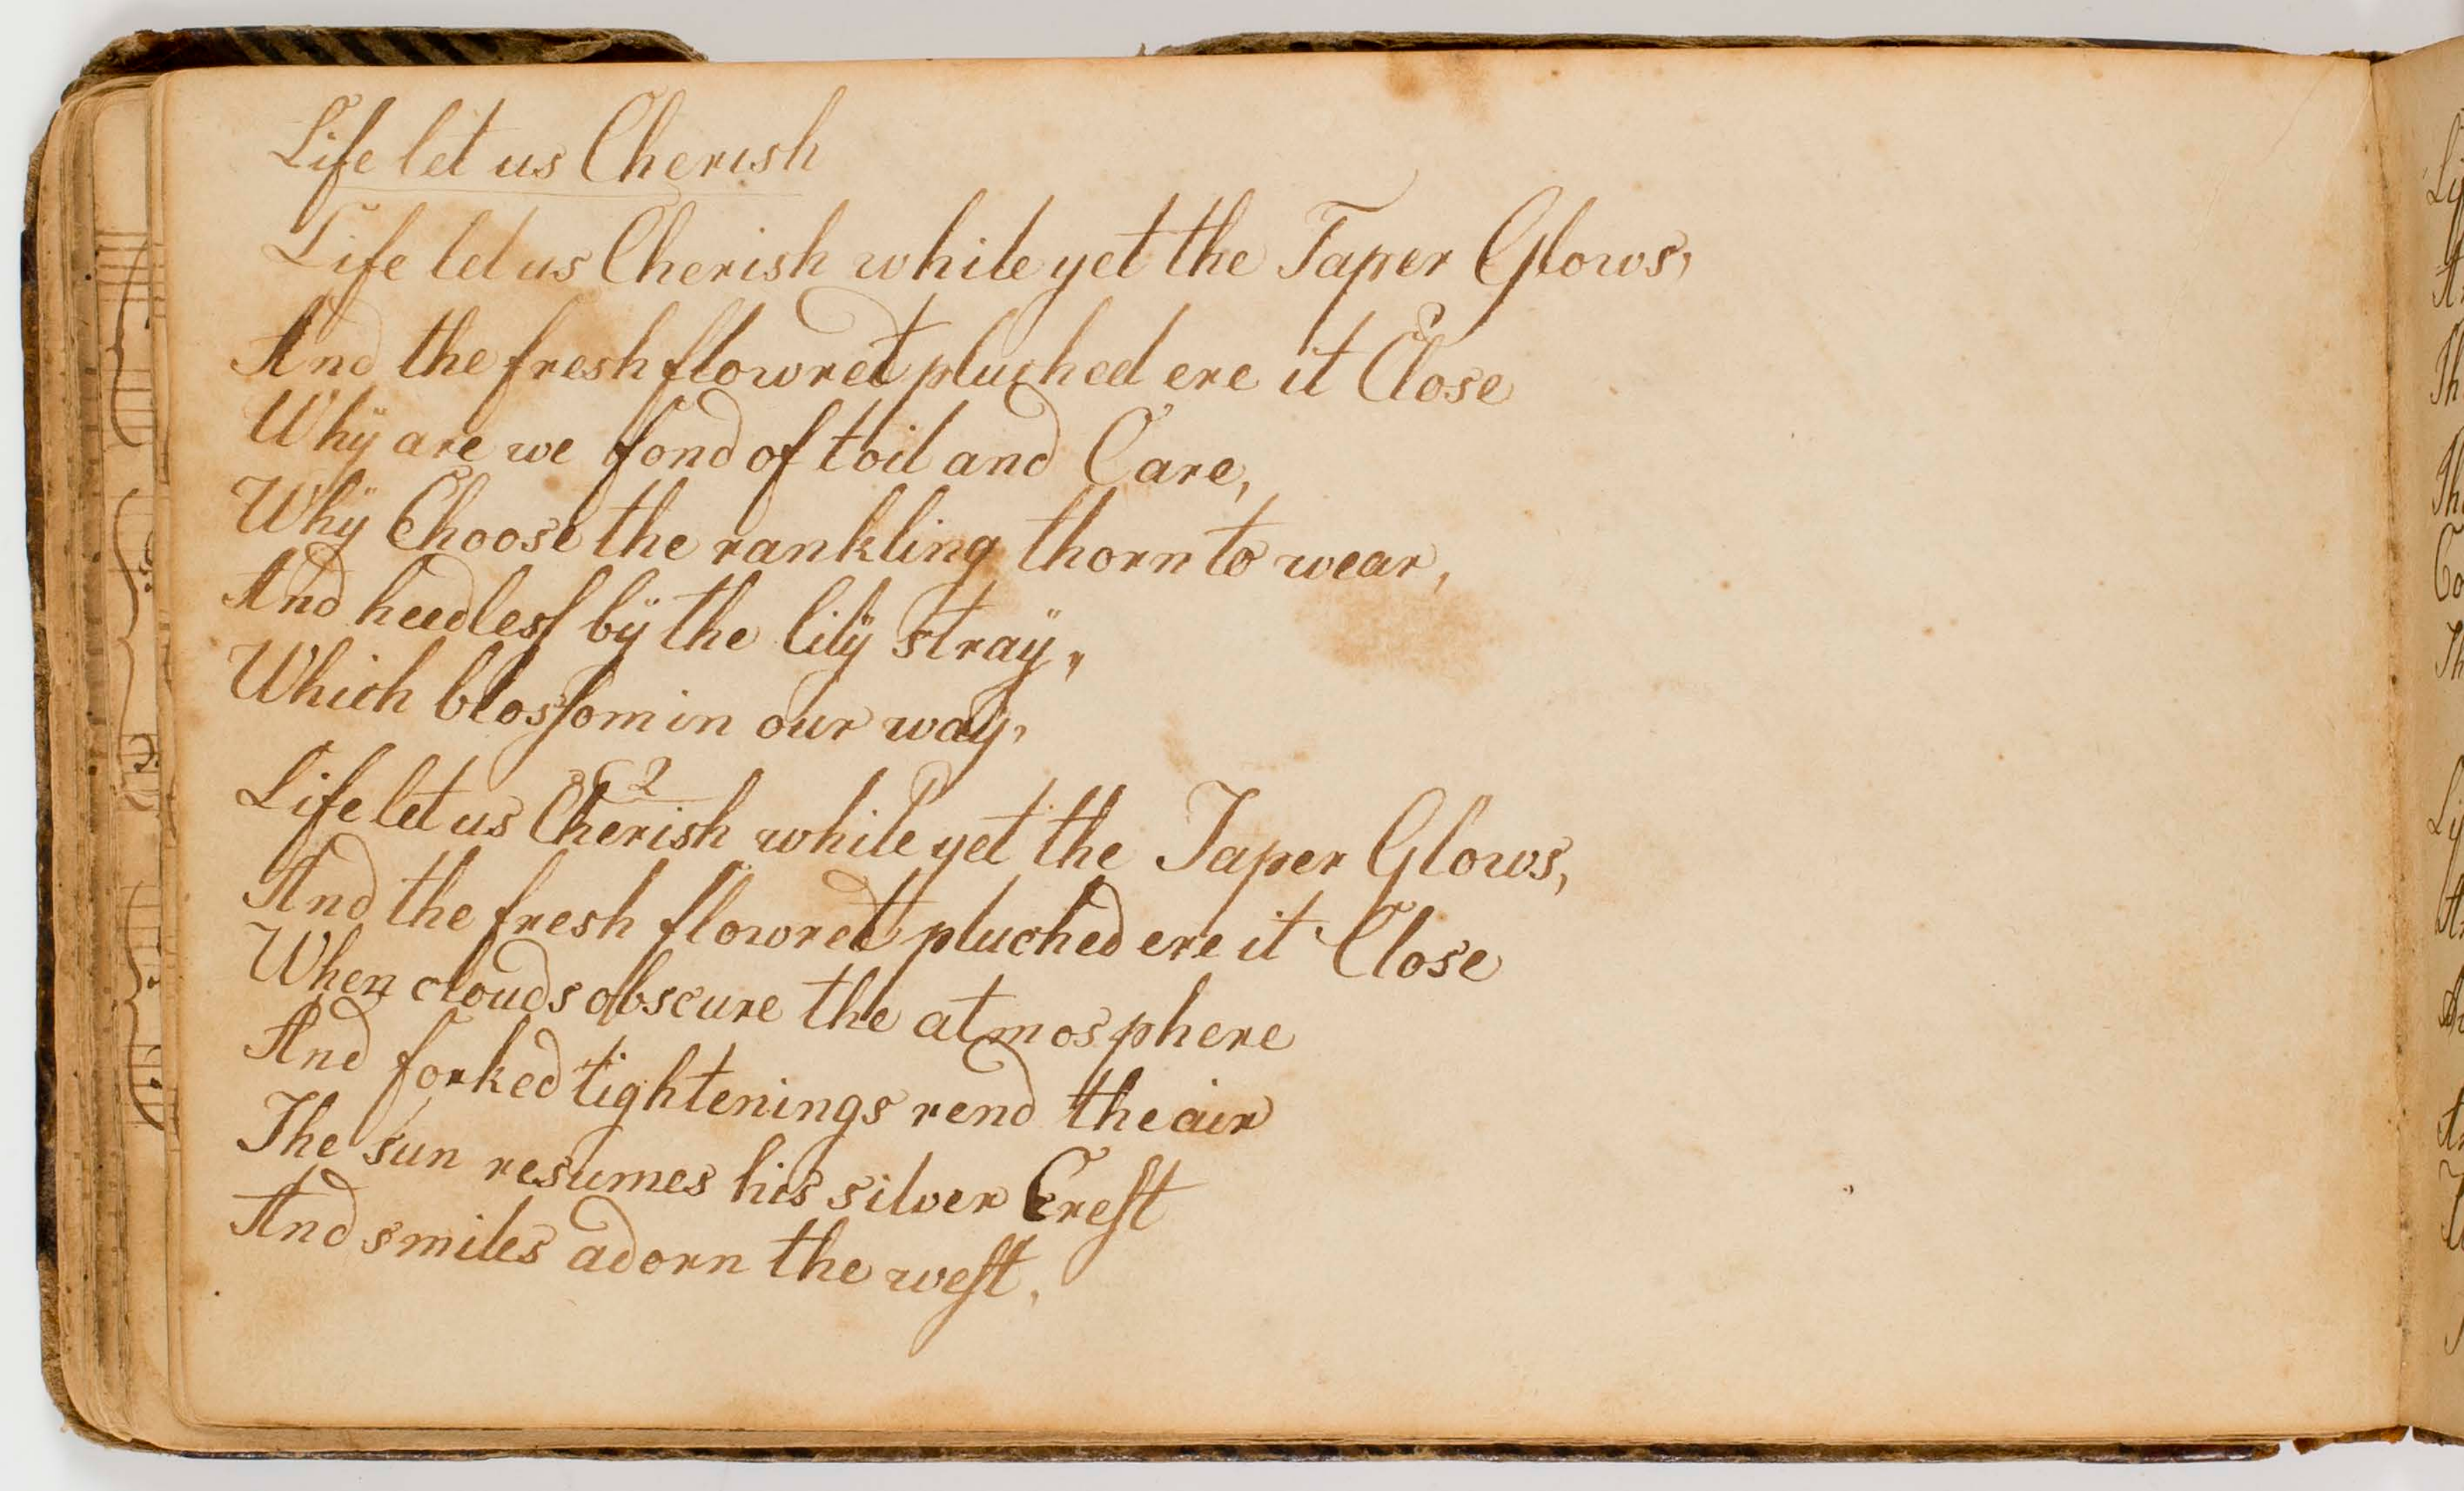 Life let us Cherish
Life let us Cherish while yet the Taper Glows,
And the fresh flowret pluched ere it Close
Whÿ are we fond of toil and Care,
Whÿ Choose the rankling thorn to wear,
And heedleſs bÿ the lilÿ straÿ,
Which blosſom in our waÿ,
2
Life let us Cherish while yet the Taper Glows,
And the fresh flowret pluched ere it Close
When clouds obscure the atmosphere
And forked tightenings rend the air
The sun resumes his silver Creſt
And smiles adorn the weſt,